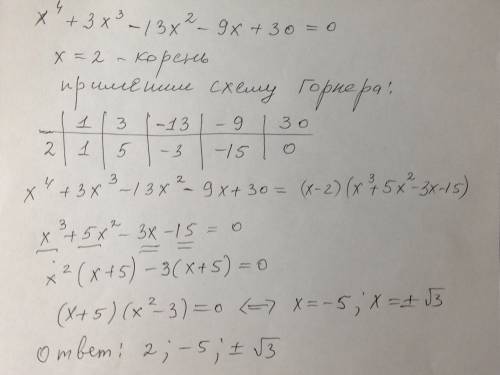 x⁴ + 3x³ − 13x² − 9x + 30 = 0
x = 2 − корень
применим схему Горнера:
| 1 | 3 | −13 | − 9 | 30
2 | 1 | 5 | −3 | −15 | 0
x⁴ + 3x³ − 13x² − 9x + 30 = (x−2)(x³+5x²−3x−15)
x³ + 5x² − 3x − 15 = 0
x²(x+5) − 3(x+5) = 0
(x+5)(x²−3) = 0 <=> x = −5; x = ±√3
Ответ: 2; −5; ±√3